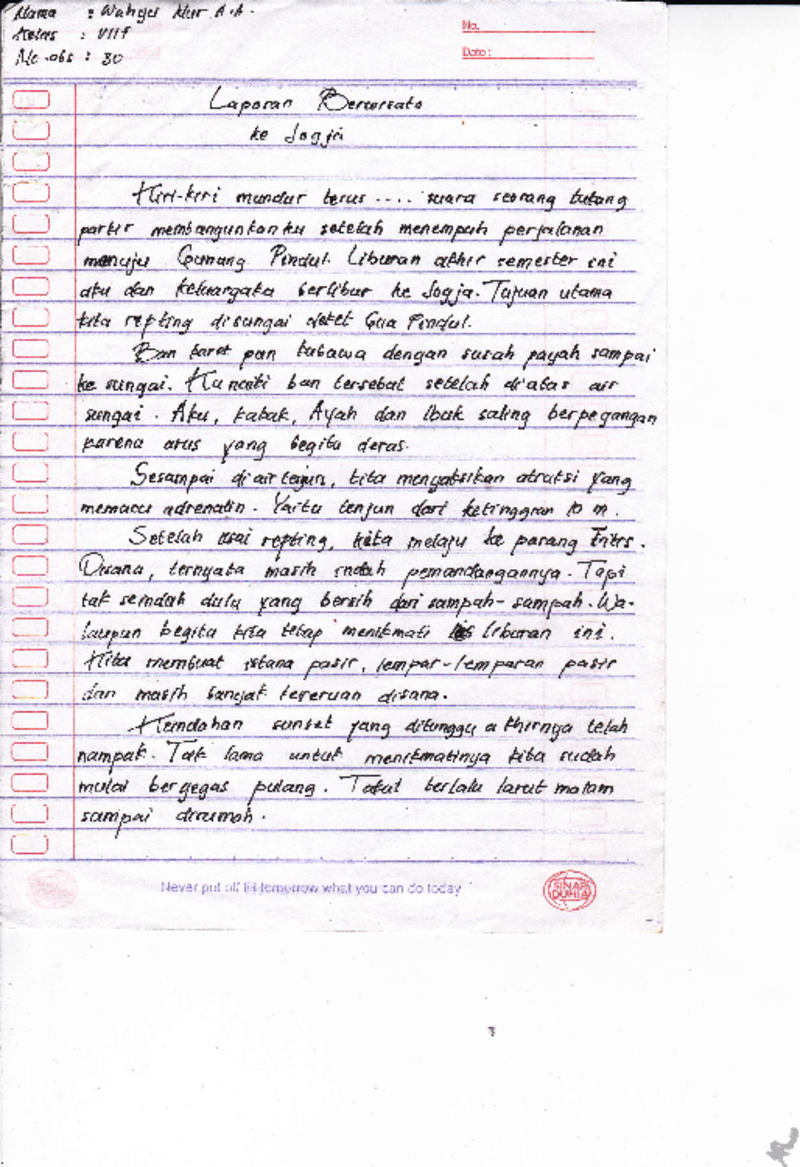 Nama : Wahyu Nur A.A.
Kelas : VIIF
No. abs : 30
No.
Date:
Laporan Berwisata
ke Jogja
Kiri-kiri mundur terus .... suara seorang tukang
parkir membangunkanku setelah menempuh perjalanan
menuju Gunung Pindul. Liburan akhir semester ini
aku dan keluargaku berlibur ke Jogja. Tujuan utama
kita repting disungai deket Gua Pindul.
Ban karet pun kubawa dengan susah payah sampai
ke sungai. Kunaiki ban tersebut setelah diatas air
sungai. Aku, kakak, Ayah dan Ibuk saling berpegangan
karena arus yang begitu deras.
Sesampai di air terjun, kita menyaksikan atraksi yang
memacu adrenalin. Yaitu terjun dari ketinggian 10 m.
Setelah usai repting, kita melaju ke parang Tritis.
Disana, ternyata masih indah pemandangannya. Tapi
tak seindah dulu yang bersih dari sampah-sampah. Wa-
laupun begitu kita tetap menikmati liburan ini.
Kita membuat istana pasir, lempar-lemparan pasir
dan masih banyak keseruan disana.
Keindahan sunset yang ditunggu akhirnya telah
nampak. Tak lama untuk menikmatinya kita sudah
mulai bergegas pulang. Takut terlalu larut malam
sampai dirumah.
Never put off till tomorrow what you can do today
SINAR
DUNIA